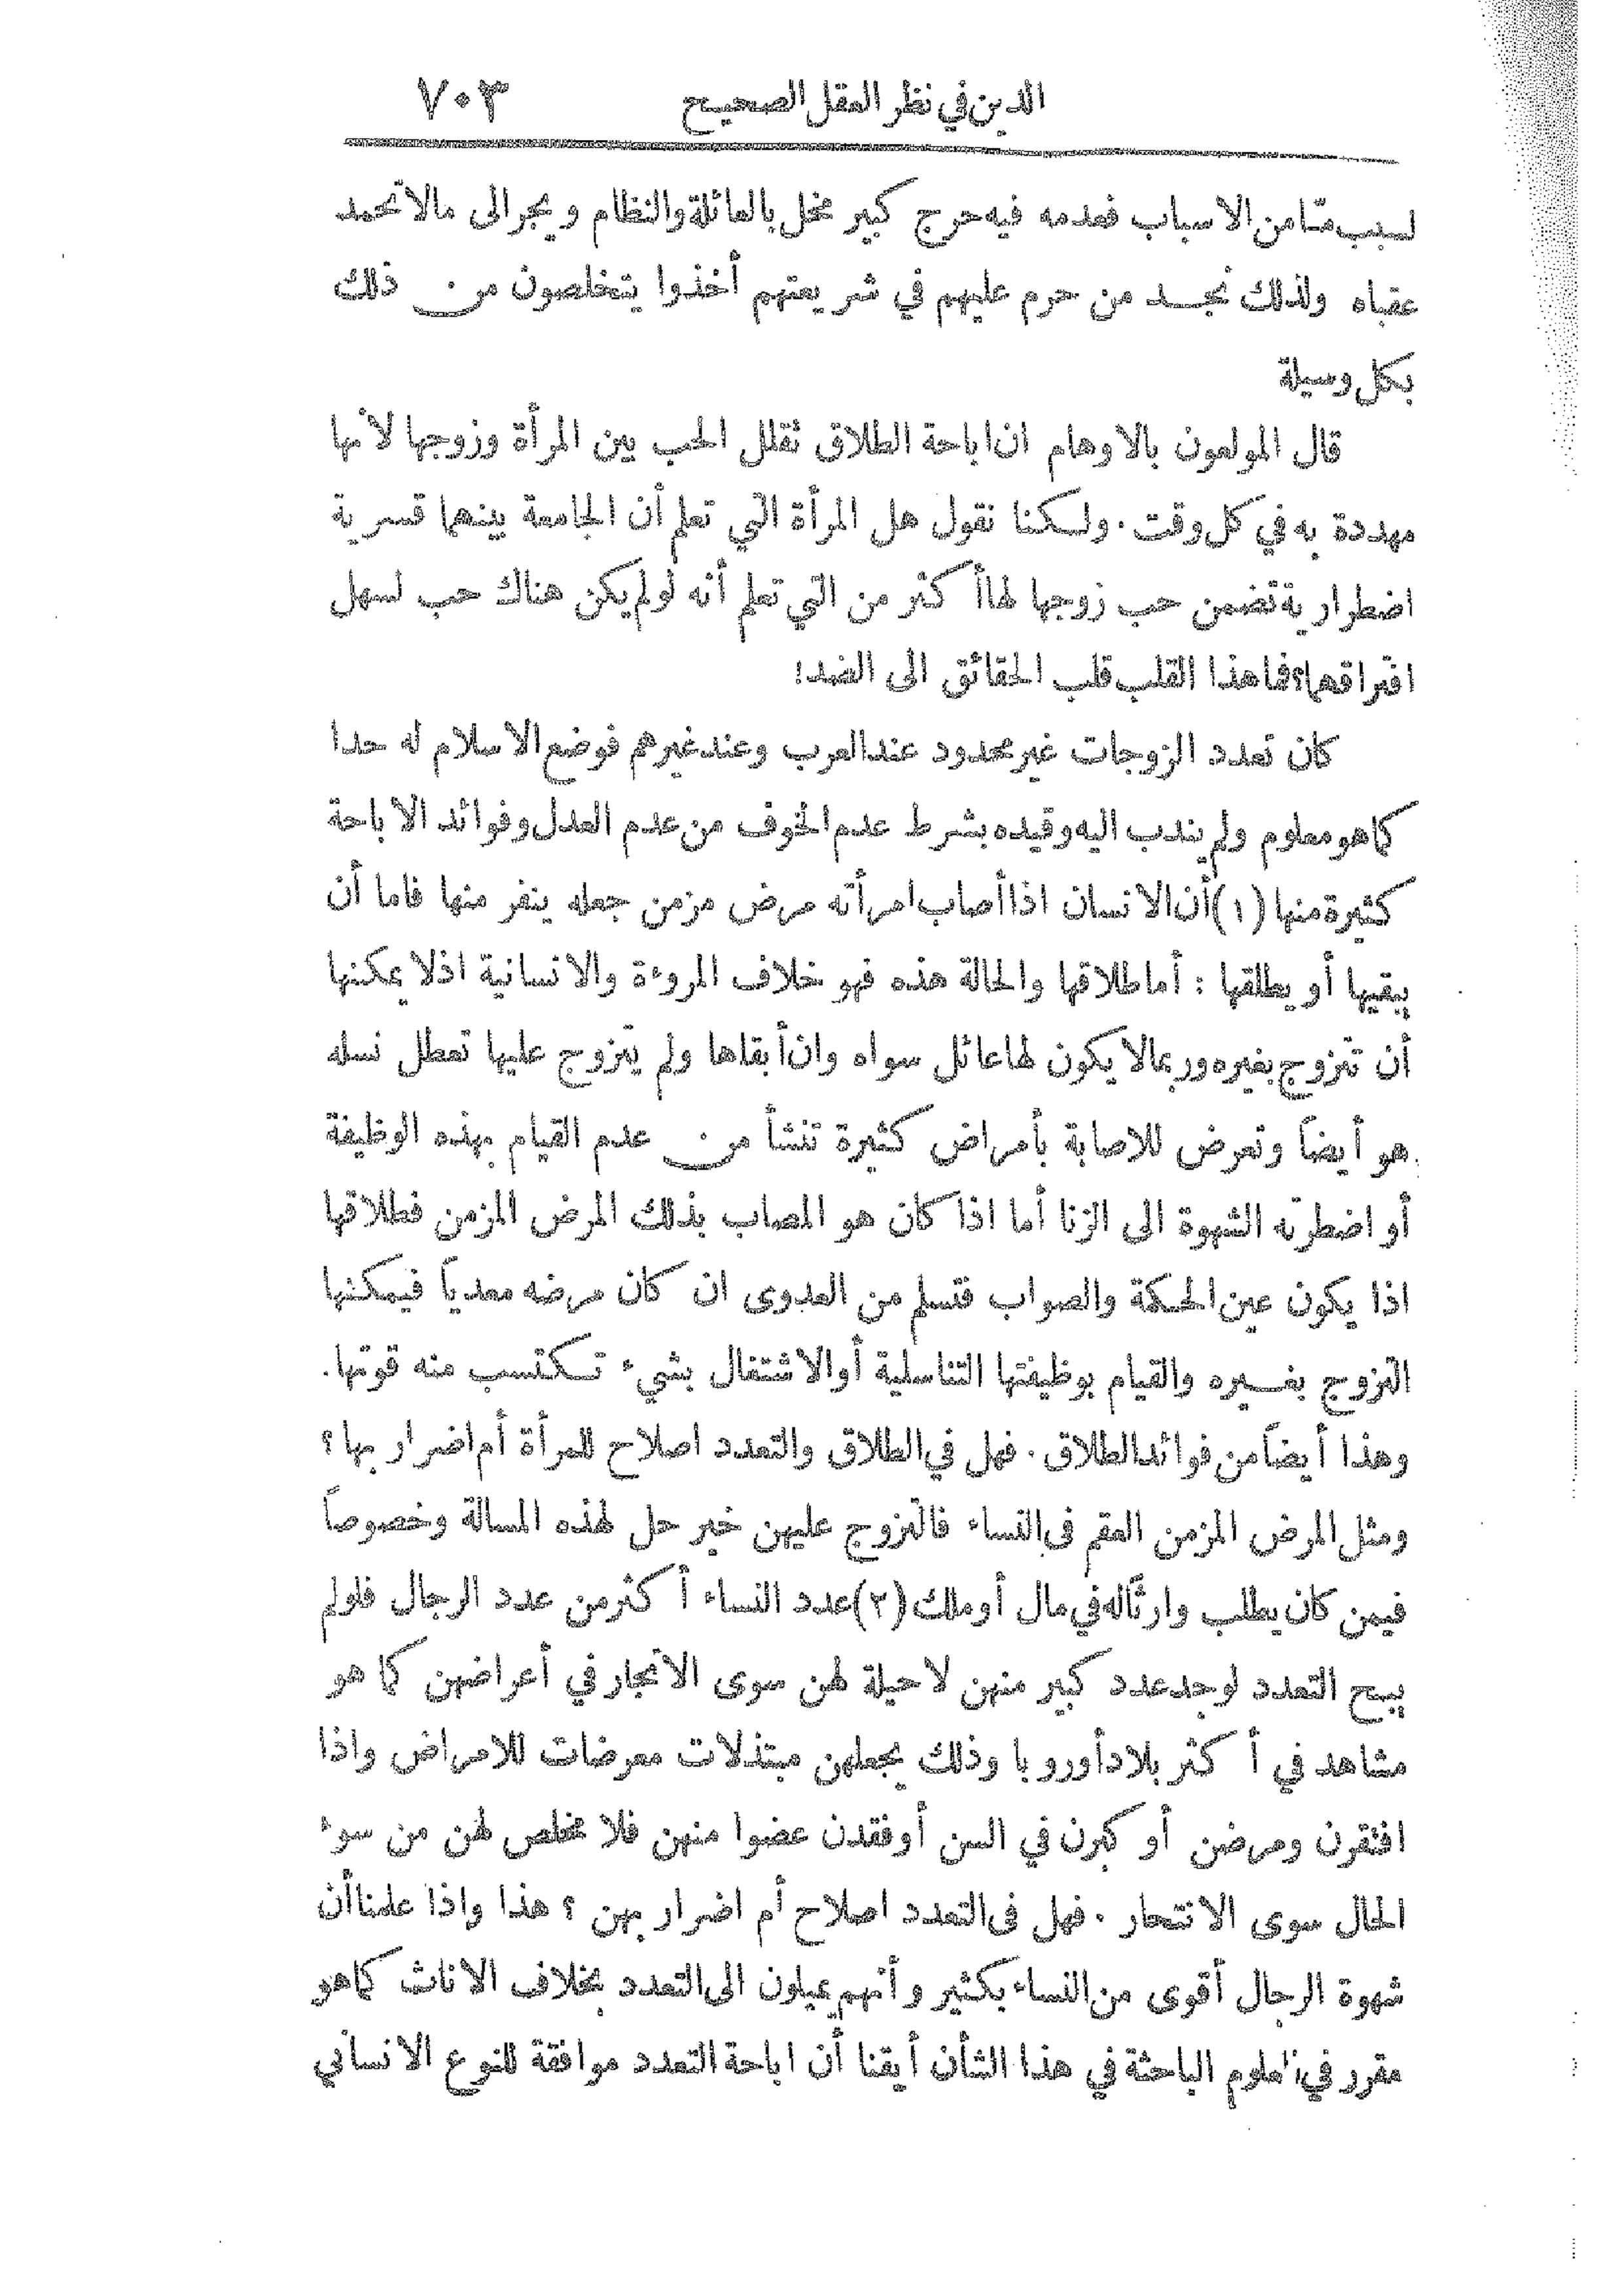 الدين في نظر العقل الصحيح ٧٠٣
لسبب مّا من الاسباب فعدمه فيه حرج كبير مخل بالعائلة والنظام ويجر الى مالا تحمد
عقباه ولذلك نجد من حرم عليهم في شريعتهم أخذوا يتخلصون من ذلك
بكل وسيلة
قال المولعون بالاوهام ان اباحة الطلاق تقلل الحب بين المرأة وزوجها لأنها
مهددة به في كل وقت. ولكنا نقول هل المرأة التي تعلم أن الجامعة بينهما قسرية
اضطرارية تضمن حب زوجها لها أكثر من التي تعلم أنه لو لم يكن هناك حب لسهل
افتراقهما؟ فما هذا القلب قلب الحقائق الى الضد!
كان تعدد الزوجات غير محدود عند العرب وعند غيرهم فوضع الاسلام له حدا
كما هو معلوم ولم يندب اليه وقيده بشرط عدم الخوف من عدم العدل وفوائد الاباحة
كثيرة منها (١) أن الانسان اذا أصاب امرأته مرض مزمن جعله ينفر منها فاما أن
يبقيها أو يطلقها : أما طلاقها والحالة هذه فهو خلاف المروءة والانسانية اذ لا يمكنها
أن تتزوج بغيره وربما لا يكون لها عائل سواه وان أبقاها ولم يتزوج عليها تعطل نسله
هو أيضاً وتعرض للاصابة بأمراض كثيرة تنشأ من عدم القيام بهذه الوظيفة
أو اضطرته الشهوة الى الزنا أما اذا كان هو المصاب بذلك المرض المزمن فطلاقها
اذا يكون عين الحكمة والصواب فتسلم من العدوى ان كان مرضه معدياً فيمكنها
التزوج بغيره والقيام بوظيفتها التناسلية أو الاشتغال بشيء تكتسب منه قوتها.
وهذا أيضاً من فوائد الطلاق. فهل في الطلاق والتعدد اصلاح للمرأة أم اضرار بها؟
ومثل المرض المزمن العقم في النساء فالتزوج عليهن خير حل لهذه المسالة وخصوصاً
فيمن كان يطلب وارثاً له في مال أو ملك (٢) عدد النساء أكثر من عدد الرجال فلو لم
يبح التعدد لوجد عدد كبير منهن لا حيلة لهن سوى الاتجار في أعراضهن كما هو
مشاهد في أكثر بلاد أوروبا وذلك يجعلهن مبتذلات معرضات للامراض واذا
افتقرن ومرضن أو كبرن في السن أو فقدن عضوا منهن فلا مخلص لهن من سوء
الحال سوى الانتحار. فهل في التعدد اصلاح أم اضرار بهن؟ هذا واذا علمنا أن
شهوة الرجال أقوى من النساء بكثير وأنهم يميلون الى التعدد بخلاف الاناث كما هو
مقرر في العلوم الباحثة في هذا الشأن أيقنا أن اباحة التعدد موافقة للنوع الانساني